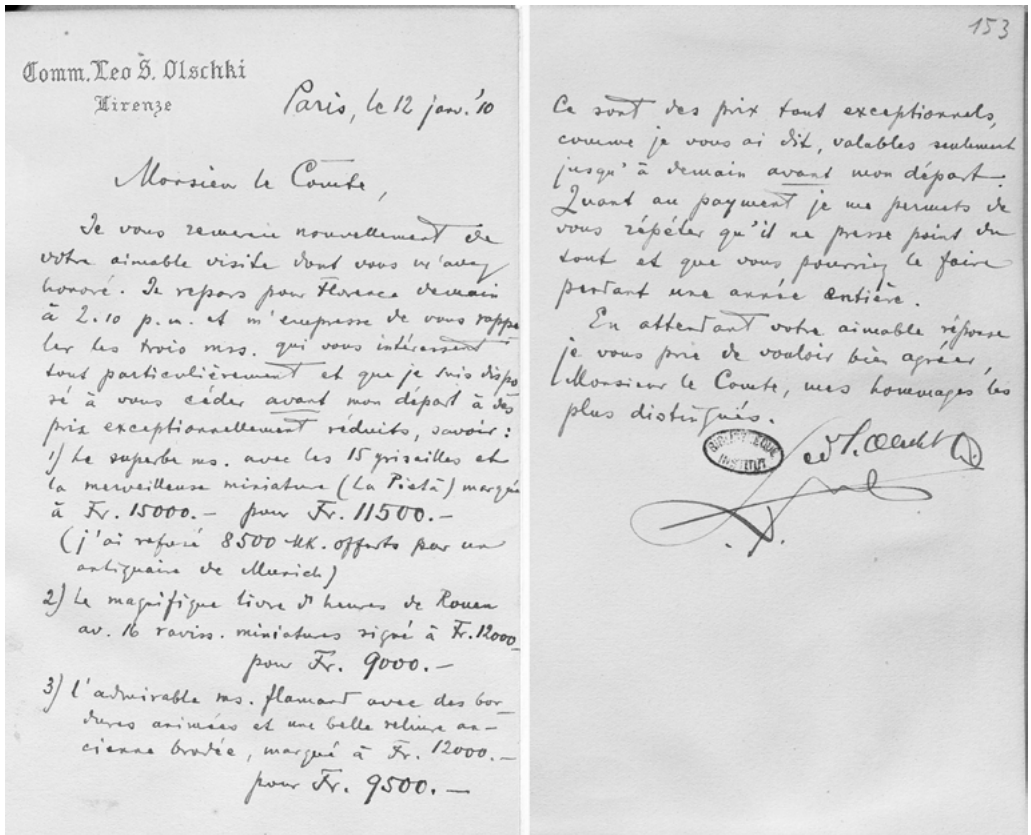 Comm. Leo S. Olschki
Firenze
Paris, le 12 janv. '10
Monsieur le Comte,
Je vous remercie nouvellement de
votre aimable visite dont vous m'avez
honoré. Je repars pour Florence demain
à 2.10 p.m. et m'empresse de vous rappe
ler les trois mss. qui vous intéressent
tout particulièrement et que je suis dispo
sé à vous céder avant mon départ à des
prix exceptionnellement réduits, savoir :
1) Le superbe ms. avec les 15 grisailles et
la merveilleuse miniature (La Pietà) marqué
à Fr. 15000.— pour Fr. 11500.—
(j'ai refusé 8500 Mk. offerts par un
antiquaire de Munich)
2) Le magnifique livre d'heures de Rouen
av. 16 raviss. miniatures signé à Fr. 12000
pour Fr. 9000.—
3) l'admirable ms. flamand avec des bor_
dures animées et une belle reliure an_
cienne brodée, marqué à Fr. 12000.—
pour Fr. 9500.—
153
Ce sont des prix tout exceptionnels,
comme je vous ai dit, valables seulement
jusqu'à demain avant mon départ.
Quant au payment je me permets de
vous répéter qu'il ne presse point du
tout et que vous pourriez le faire
pendant une année entière.
En attendant votre aimable réponse
je vous prie de vouloir bien agréer,
Monsieur le Comte, mes hommages les
plus distingués.
BIBLIOTHEQUE
INSTITUT